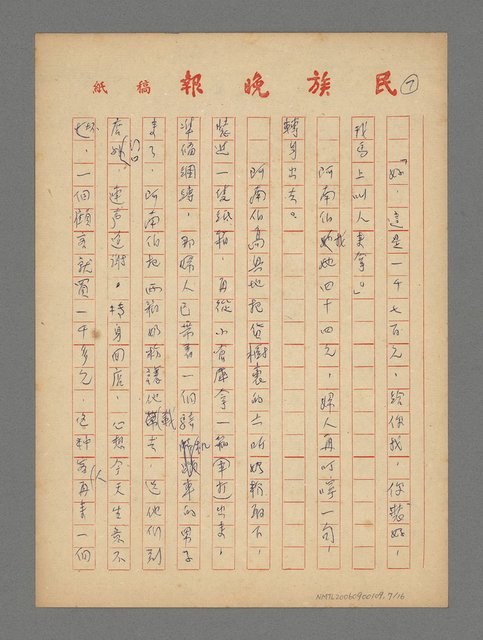 民族晚報稿紙
7
「好，這是一千七百元，給你找，你裝好，
我馬上叫人來拿。」
阿南伯找她四十四元，婦人再叮嚀一句，
轉身出去。
阿南伯高興地把貨櫥裏的六听奶粉取下，
裝進一隻紙箱，再從小倉庫拿一箱（軍打）出來，
準備綑綁，那婦人已帶着一個騎機車的男子
來了，阿南伯把兩箱奶粉讓他載去，送他們到
店門外，連声道謝。轉身回店，心想今天生意不
壞，一個顧客就買一千多元，這種客人再來一個
NMTL20060900109, 7/16